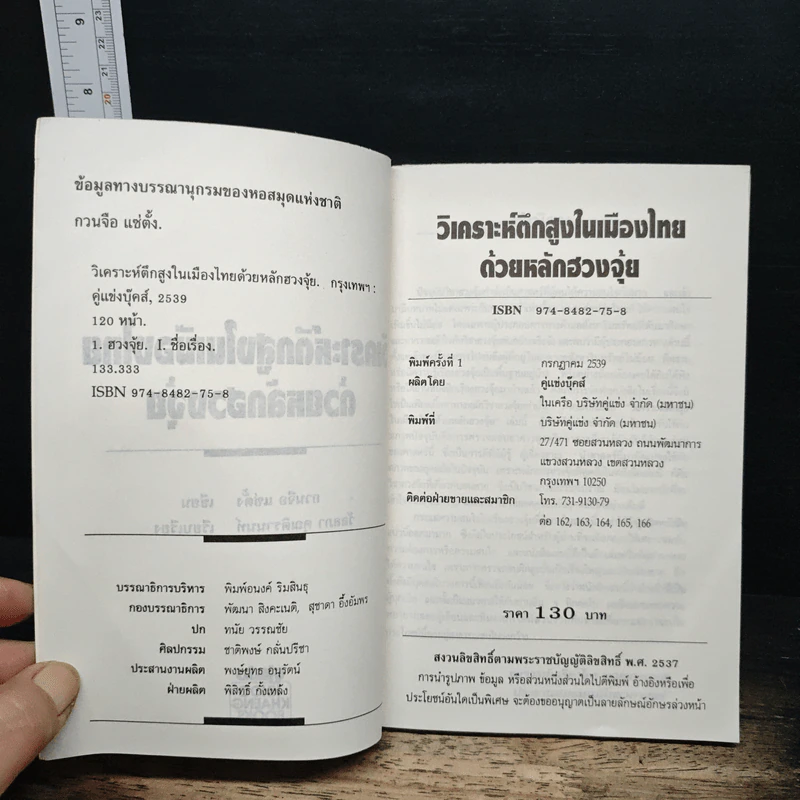 ข้อมูลทางบรรณานุกรมของหอสมุดแห่งชาติ
กวนจือ แซ่ตั้ง.
วิเคราะห์ตึกสูงในเมืองไทยด้วยหลักฮวงจุ้ย. กรุงเทพฯ :
คู่แข่งบุ๊คส์, 2539
120 หน้า.
1. ฮวงจุ้ย. I. ชื่อเรื่อง.
133.333
ISBN 974-8482-75-8
บรรณาธิการบริหาร พิมพ์อนงค์ ริมสินธุ
กองบรรณาธิการ พัฒนา สิงคะเนติ, สุชาดา อึ้งอัมพร
ปก ทนัย วรรณชัย
ศิลปกรรม ชาติพงษ์ กลั่นปรีชา
ประสานงานผลิต พงษ์ยุทธ อนุรัตน์
ฝ่ายผลิต พิสิทธิ์ กั้งเหล้ง
วิเคราะห์ตึกสูงในเมืองไทย
ด้วยหลักฮวงจุ้ย
ISBN 974-8482-75-8
พิมพ์ครั้งที่ 1 กรกฎาคม 2539
ผลิตโดย คู่แข่งบุ๊คส์
ในเครือ บริษัทคู่แข่ง จำกัด (มหาชน)
พิมพ์ที่ บริษัทคู่แข่ง จำกัด (มหาชน)
27/471 ซอยสวนหลวง ถนนพัฒนาการ
แขวงสวนหลวง เขตสวนหลวง
กรุงเทพฯ 10250
ติดต่อฝ่ายขายและสมาชิก โทร. 731-9130-79
ต่อ 162, 163, 164, 165, 166
ราคา 130 บาท
สงวนลิขสิทธิ์ตามพระราชบัญญัติลิขสิทธิ์ พ.ศ. 2537
การนำรูปภาพ ข้อมูล หรือส่วนหนึ่งส่วนใดไปตีพิมพ์ อ้างอิงหรือเพื่อ
ประโยชน์อันใดเป็นพิเศษ จะต้องขออนุญาตเป็นลายลักษณ์อักษรล่วงหน้า
9
8
23
22
21
20